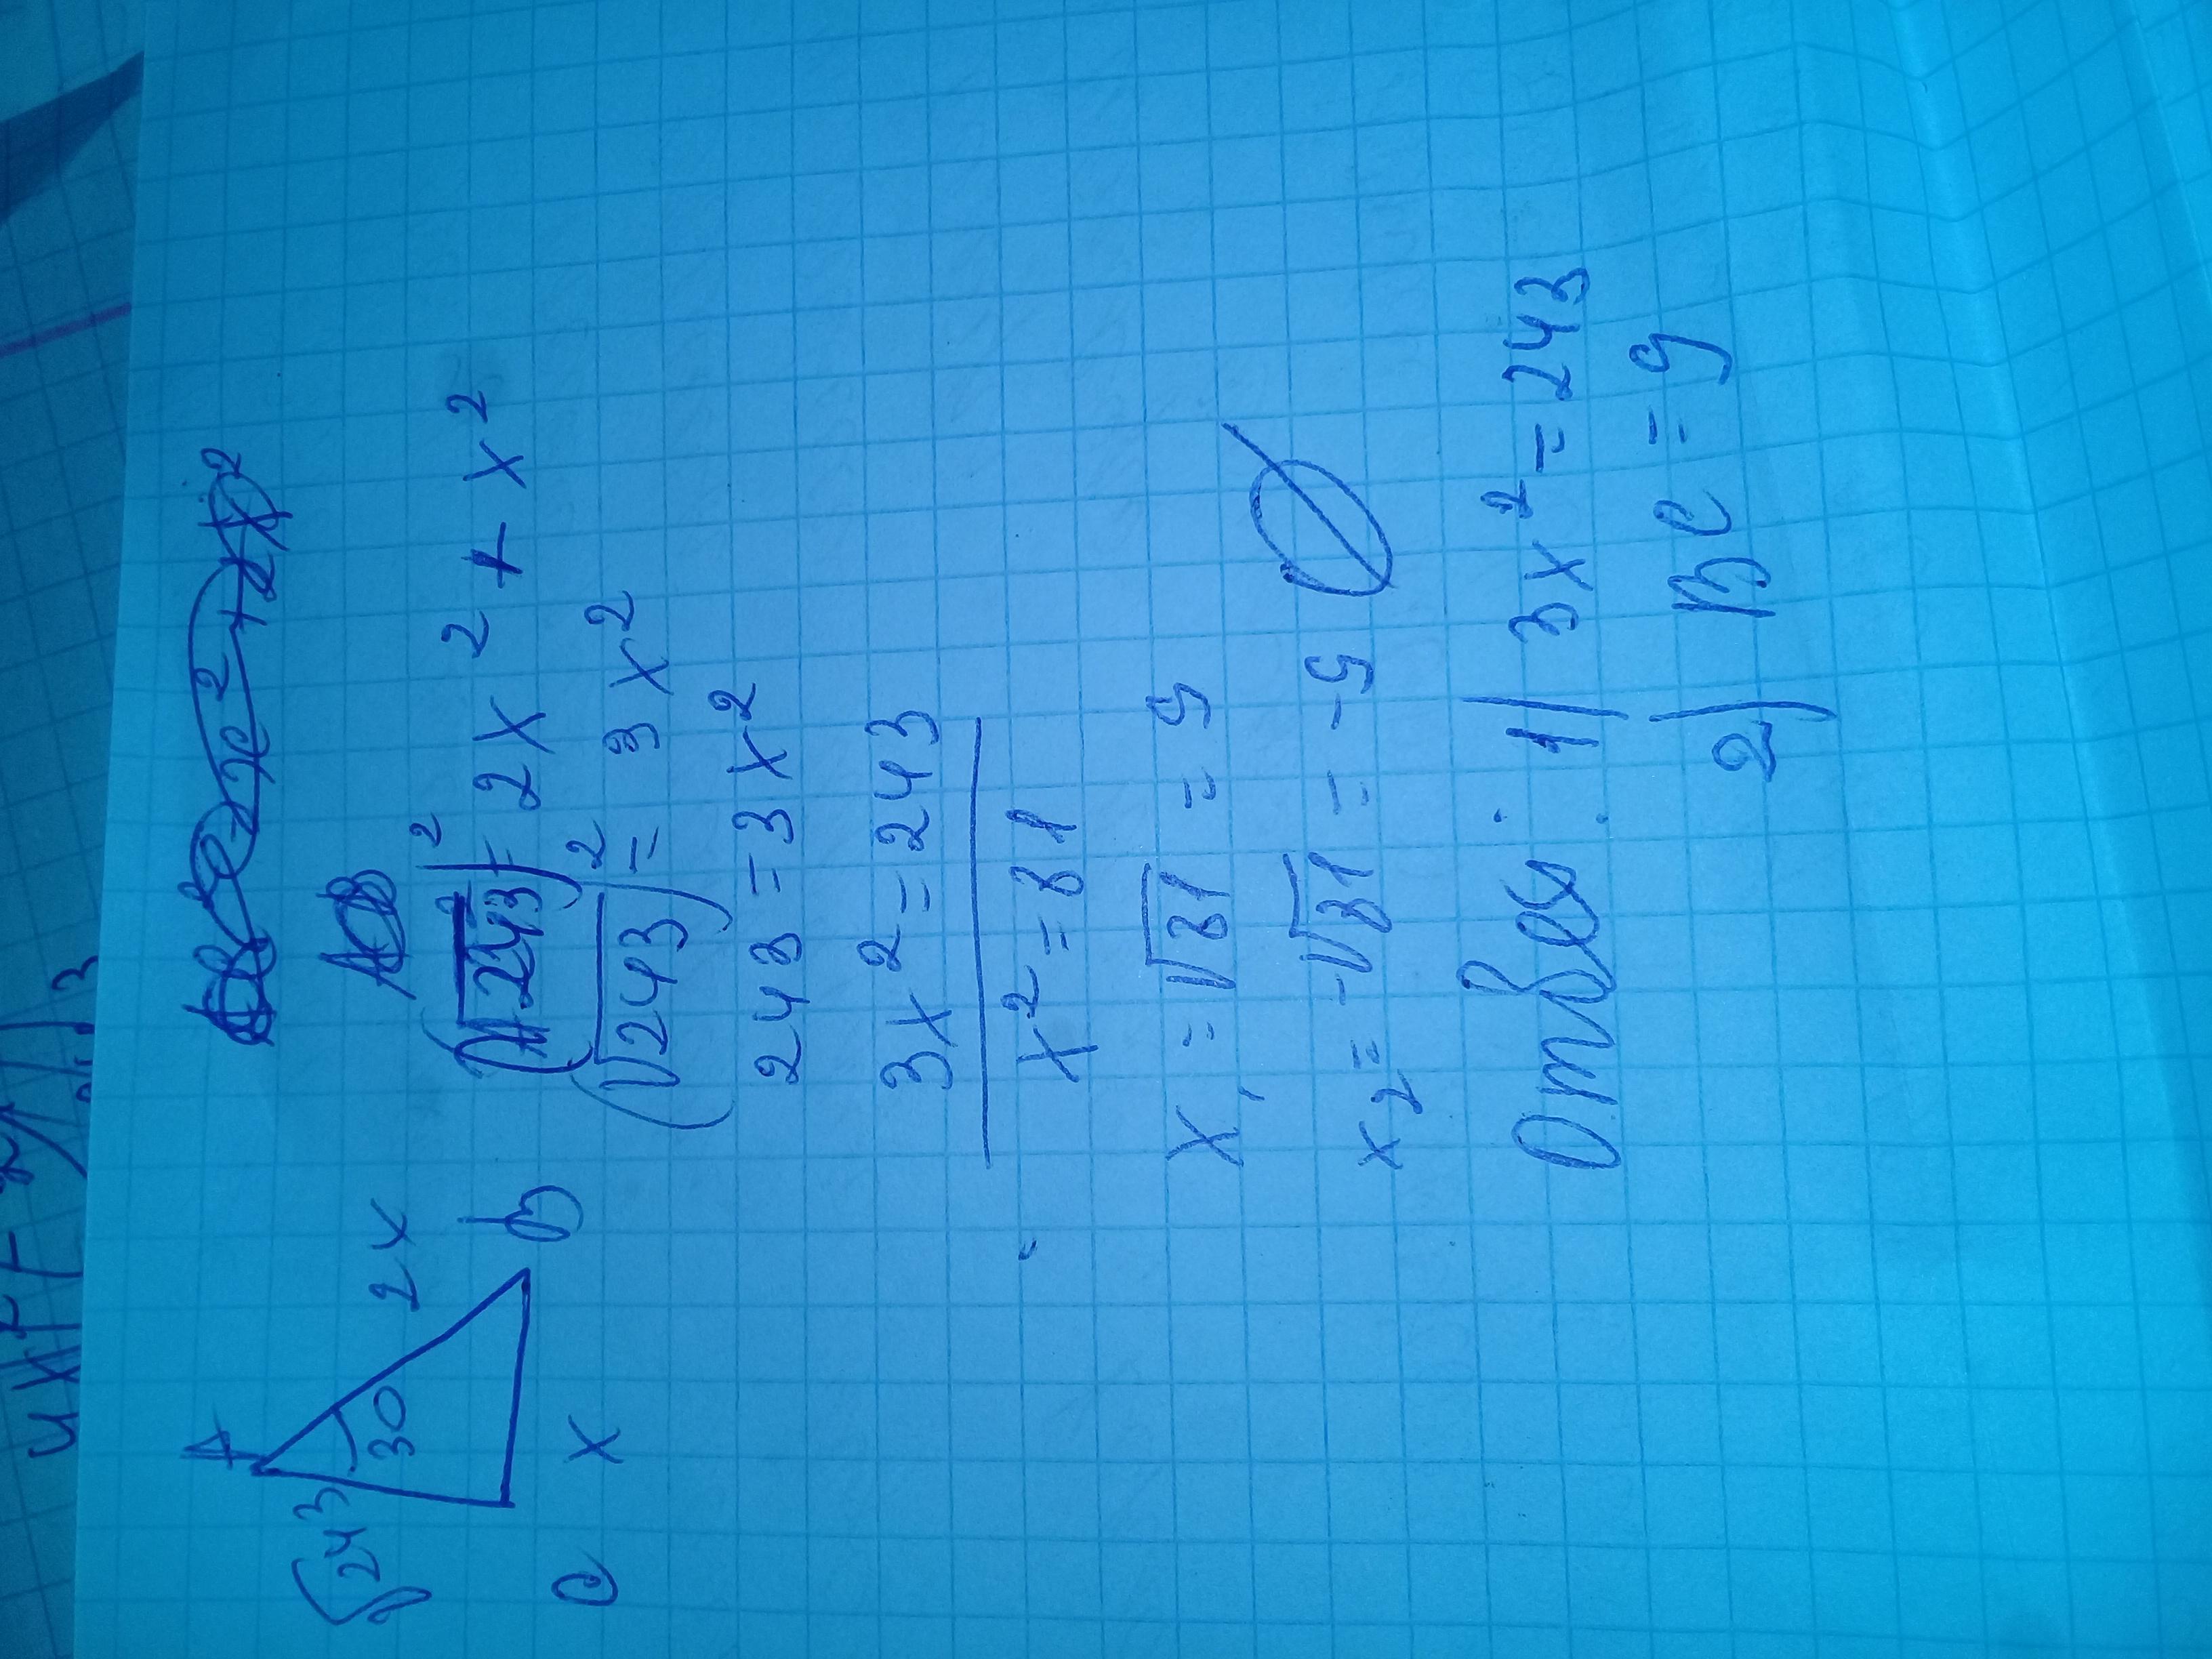 A
√243
30
2x
C
x
B
(√243)² = 2x² + x²
(√243)² = 3x²
243 = 3x²
3x² = 243
x² = 81
x₁ = √81 = 9
x₂ = -√81 = -9 ∅
Ответ: 1) 3x² = 243
2) BC = 9